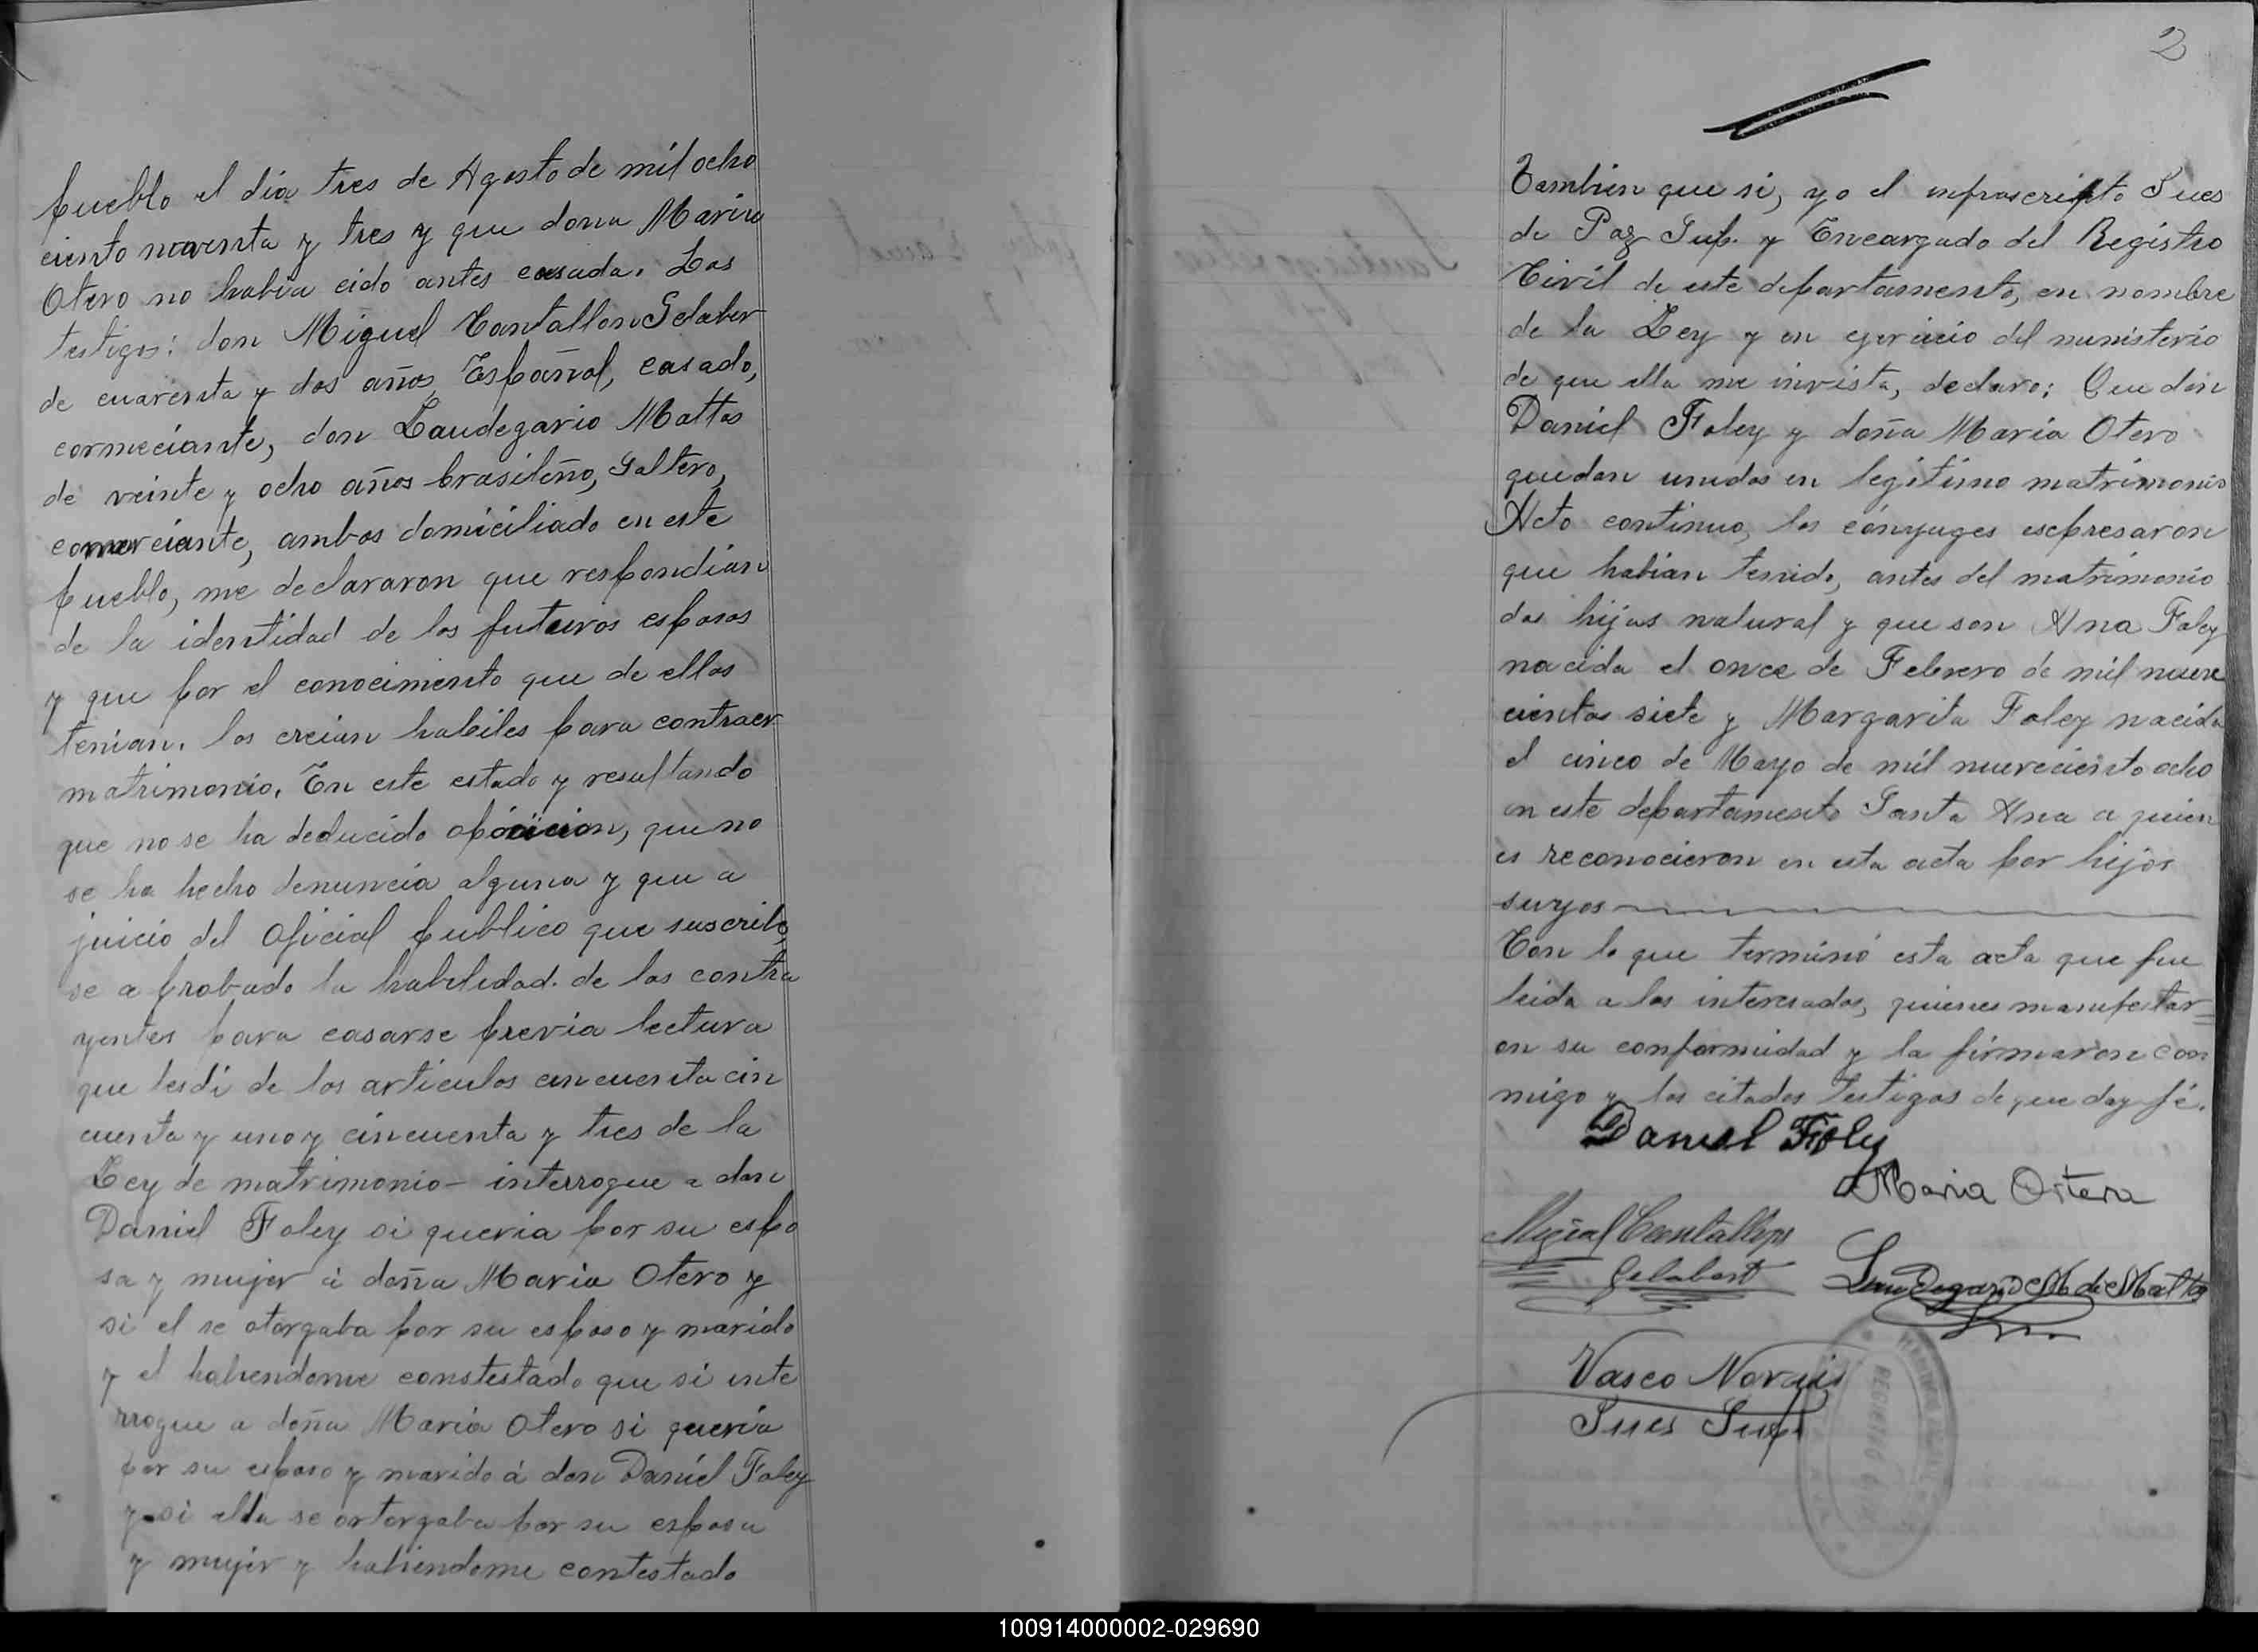 pueblo el dia tres de Agosto de mil ocho
ciento noventa y tres y que dona Maria
Otero no habia cido antes casada. Los
testigos: don Miguel Cantallon Gelaber
de cuarenta y dos años, Español, casado,
cormeciante, don Laudegario Mattos
de veinte y ocho años brasileño, Soltero,
comerciante, ambos domiciliado en este
pueblo, me declararon que respondian
de la identidad de los futuros esposos
y que por el conocimiento que de ellos
tenian. los creian habiles para contraer
matrimonio. En este estado y resultando
que no se ha deducido que no
se ha hecho denuncia alguna y que a
juicio del Oficial publico que suscribe,
se a probado la habilidad de los contra
yentes para casarse previa lectura
que les di de los articulos cincuenta cin
cuenta y uno y cincuenta y tres de la
Ley de matrimonio - interrogue a don
Daniel Foley si queria por su espo
sa y mujer á doña Maria Otero y
si el se otorgaba por su esposo y marido
y el habiendome constestado que si inte
rrogue a doña Maria Otero si queria
por su esposo y marido á don Daniel Foley
y si ella se ortorgaba por su esposa
y mujer y habiendome contestado
2
Tambien que si, yo el infrascripto Jues
de Paz Sup. y Encargado del Registro
Civil de este departamento, en nombre
de la Ley y en ejercicio del ministerio
de que ella me invista, declaro: Que don
Daniel Foley y doña Maria Otero
quedan unidos en legitimo matrimonio
Acto continuo, los cónyuges espresaron
que habian tenido, antes del matrimonio
dos hijas natural y que son Ana Foley
nacida el once de Febrero de mil nueve
cientos siete y Margarita Foley nacida
el cinco de Mayo de mil nueveciento ocho
en este departamento Santa Ana a quien
es reconocieron en esta acta por hijos
suyos
Con lo que terminó esta acta que fue
leida a los interesados, quienes manifestar=
on su conformidad y la firmaron con
migo y los citados testigos de que doy fé.
Daniel Foley
Maria Ortera
Miguel Cantallops
Gelabert
Laudegario M de Mattos
Vasco Novais
Jues Sup.
100914000002-029690